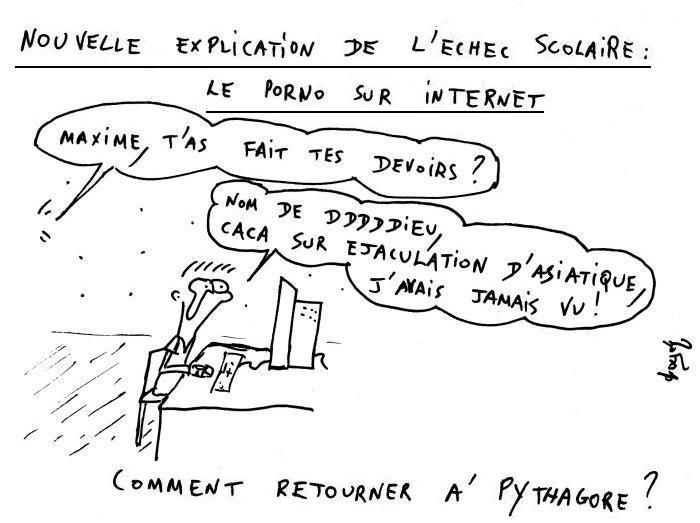 NOUVELLE EXPLICATION DE L'ECHEC SCOLAIRE :
LE PORNO SUR INTERNET
MAXIME, T'AS FAIT TES DEVOIRS ?
NOM DE DDDDDIEU,
CACA SUR EJACULATION D'ASIATIQUE,
J'AVAIS JAMAIS VU !
COMMENT RETOURNER A' PYTHAGORE ?